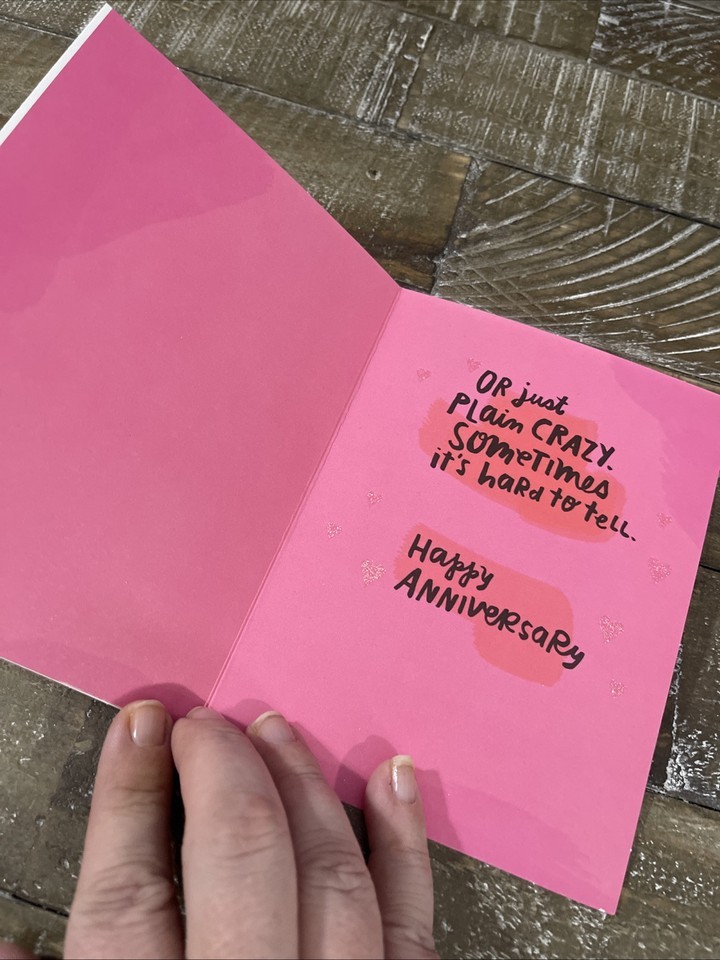 OR just
PLain CRAZY.
SOMeTIMes
it's haRd to teLL.
Happy
ANNIVeRsaRy